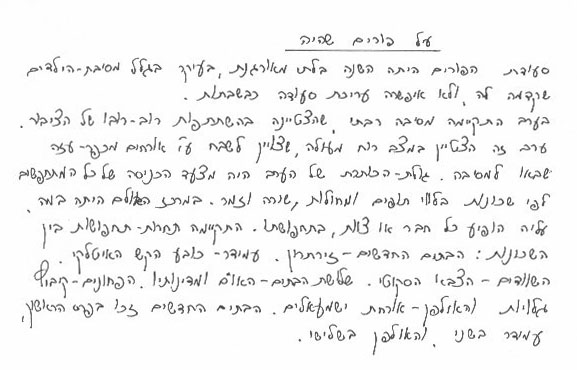 על פורים שהיה
סעודת הפורים היתה השנה בלתי מאורגנת, בעיקר בגלל מסיבת-הילדים
שקדמה לה, ולא איפשרה עריכת סעודה כבשבתות.
בערב התקיימה מסיבה רבתי, שהצטיינה בהשתתפות רוב-רובו של הציבור.
ערב זה הצטיין במצב רוח מעולה, שצויין לשבח ע"י אורחים מכפר-עזה
שבאו למסיבה. גולת-הכותרת של הערב היה מצעד הכניסה של כל המתחפשים
לפי שכונות בלווי תופים ומחולות, שירה וזמר. במרכז האולם היתה במה,
עליה הופיע כל חבר או צוות, בתחפושתו. התקיימה תחרות-תחפושות בין
השכונות: הבתים החדשים - עמידר - כובע הקש האיטלקי.
השוודים - הצבא הסקוטי. שלושת הבתים - האו"ם ומדינותיו. הפחונים - קיבוץ
גלויות והאולפן - אורחת ישמעאלים. הבתים החדשים זכו בפרס הראשון,
עמידר בשני. והאולפן בשלישי.